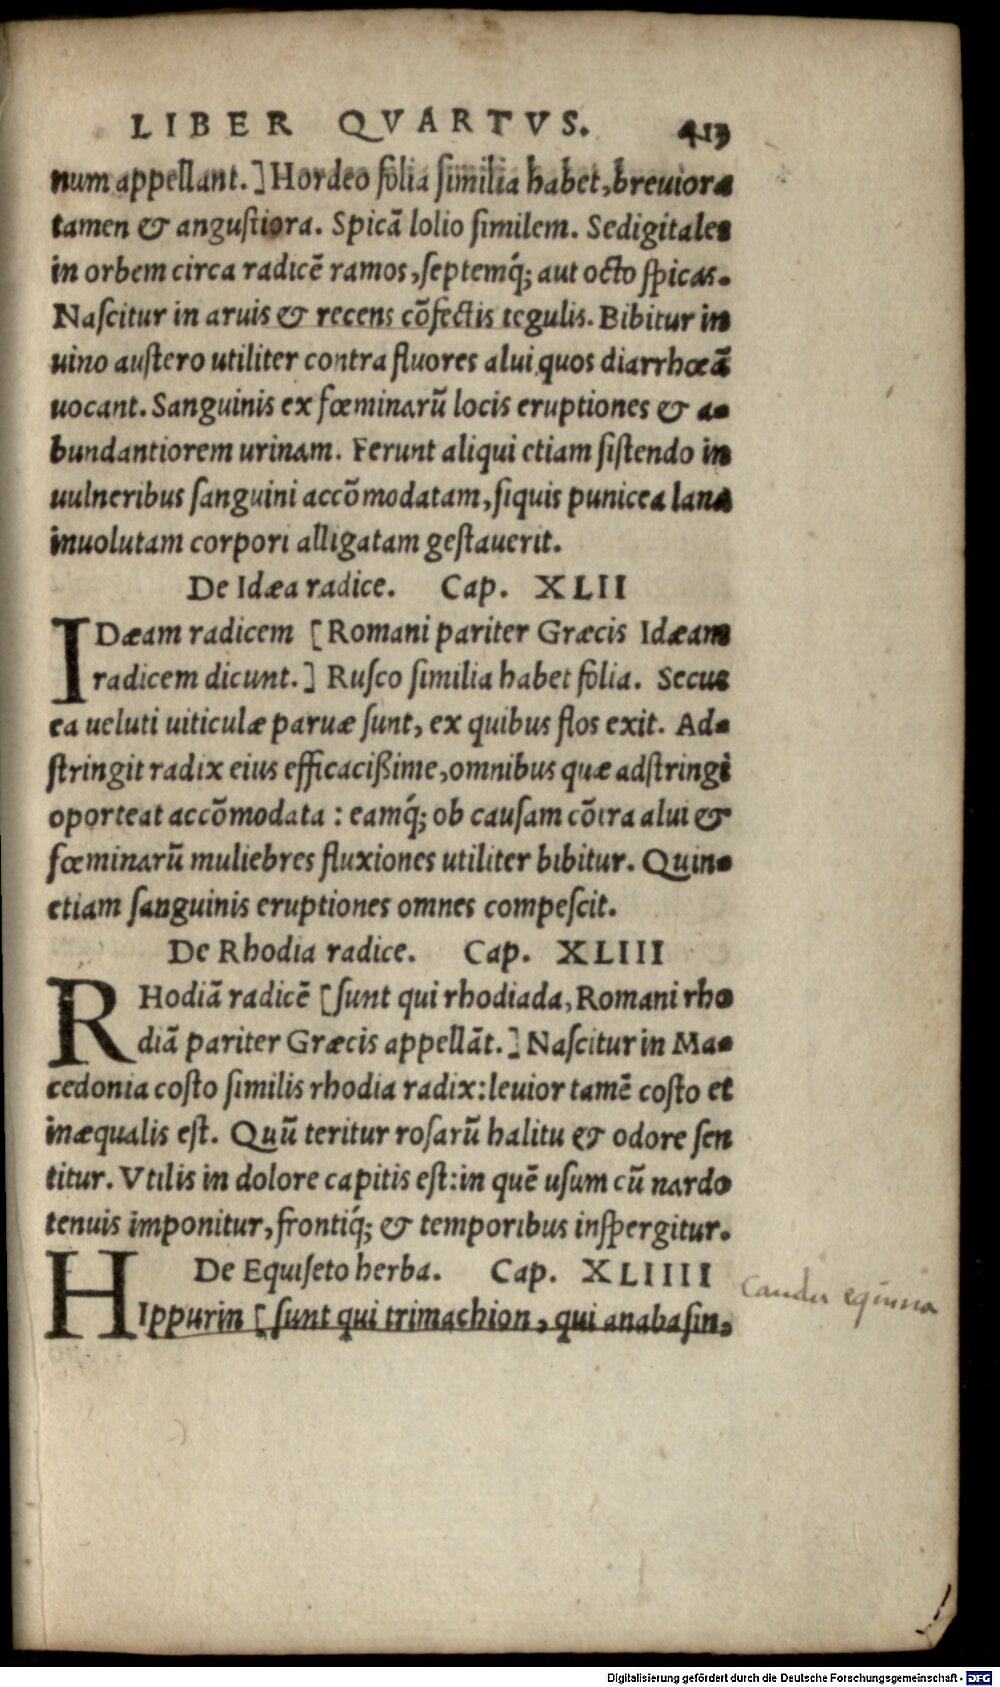 LIBER QVARTVS. 413
num appellant.] Hordeo folia similia habet, breuiora
tamen & angustiora. Spicā lolio similem. Sedigitales
in orbem circa radicē ramos, septemq́; aut octo spicas.
Nascitur in aruis & recens cōfectis tegulis. Bibitur in
uino austero utiliter contra fluores alui quos diarrhœā
uocant. Sanguinis ex fœminarū locis eruptiones & a-
bundantiorem urinam. Ferunt aliqui etiam sistendo in
uulneribus sanguini accōmodatam, siquis punicea lana
inuolutam corpori alligatam gestauerit.
De Idæa radice. Cap. XLII
IDæam radicem [Romani pariter Græcis Idæam
radicem dicunt.] Rusco similia habet folia. Secus
ea ueluti uiticulæ paruæ sunt, ex quibus flos exit. Ad-
stringit radix eius efficacißime, omnibus quæ adstringi
oporteat accōmodata : eamq́; ob causam cōtra alui &
fœminarū muliebres fluxiones utiliter bibitur. Quin-
etiam sanguinis eruptiones omnes compescit.
De Rhodia radice. Cap. XLIII
RHodiā radicē [sunt qui rhodiada, Romani rho
diā pariter Græcis appellāt.] Nascitur in Ma-
cedonia costo similis rhodia radix: leuior tamē costo et
inæqualis est. Quū teritur rosarū halitu & odore sen
titur. Vtilis in dolore capitis est: in quē usum cū nardo
tenuis imponitur, frontiq́; & temporibus inspergitur.
De Equiseto herba. Cap. XLIIII
HIppurin [sunt qui trimachion, qui anabasin,
Cauda equina
Digitalisierung gefördert durch die Deutsche Forschungsgemeinschaft - DFG